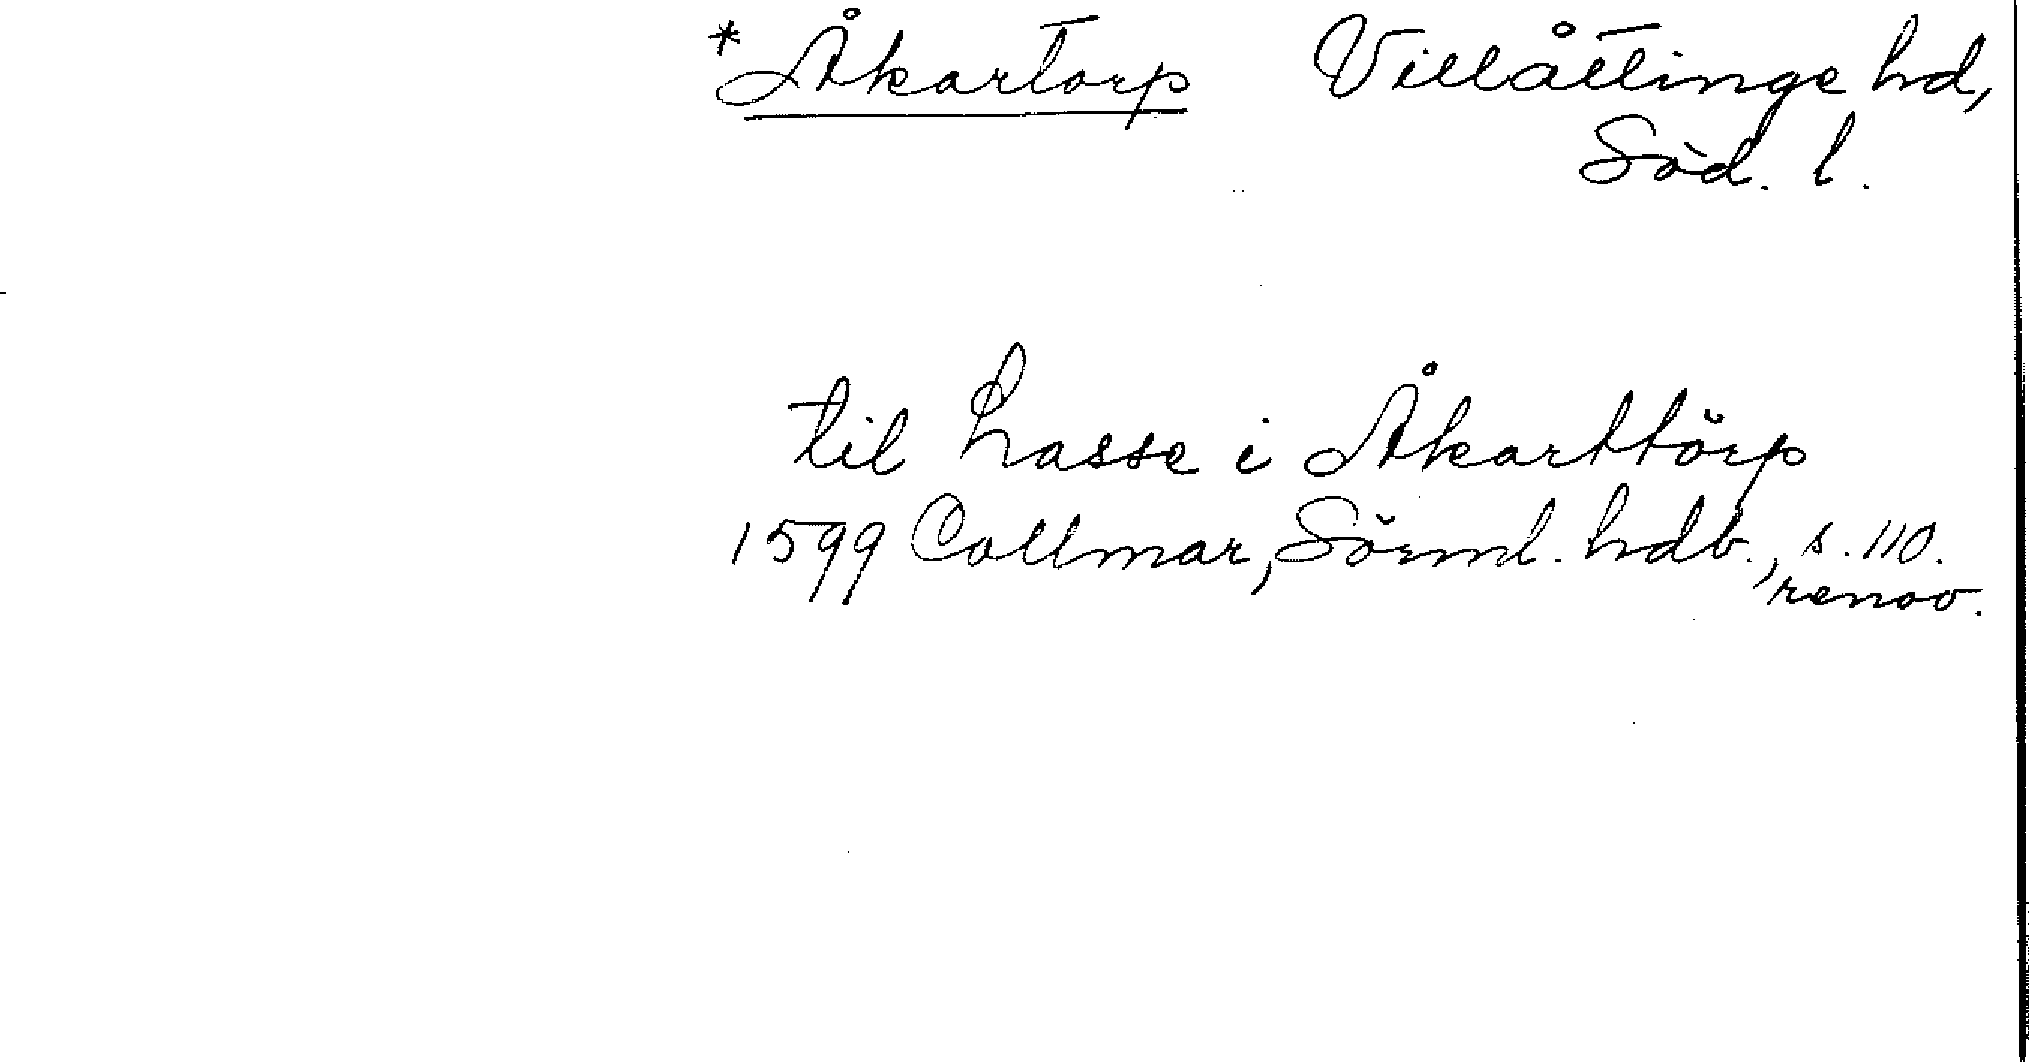 *Åkartorp Villåttinge hd,
Söd. l.
til Lasse i Åkarttörp
1599 Collmar, Sörml. hdb., s. 110.
renov.